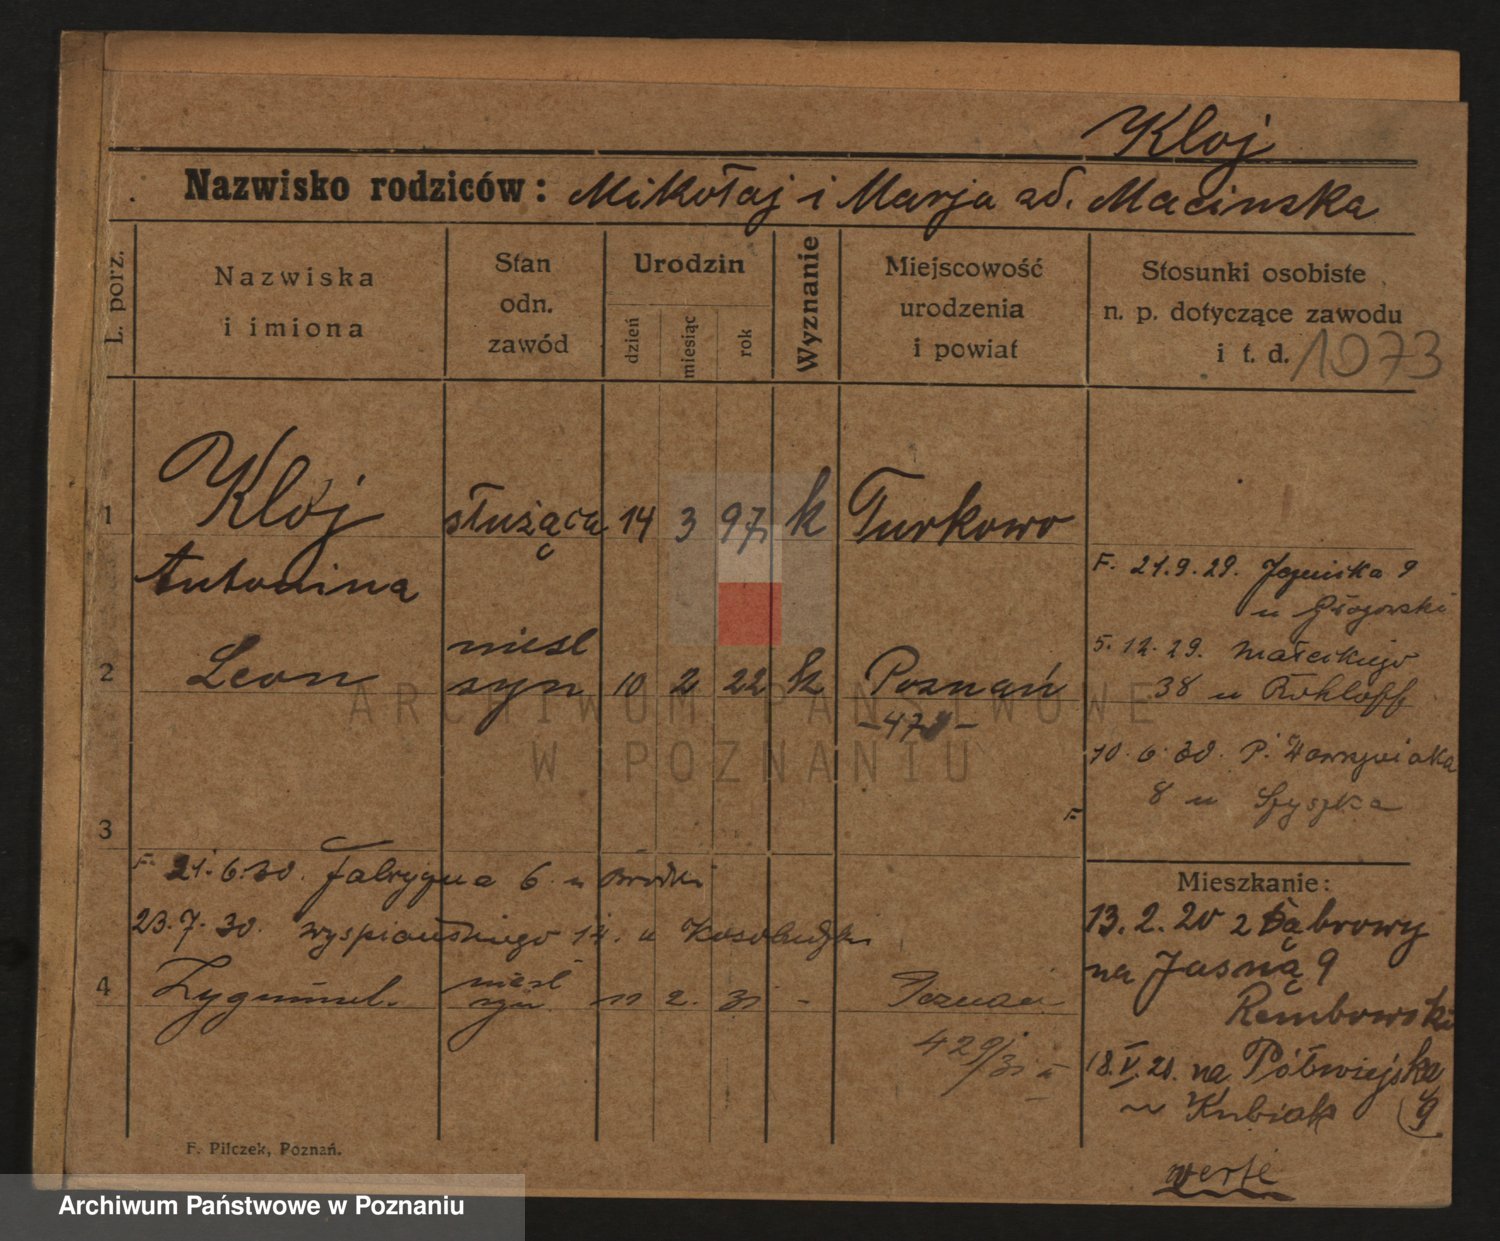 Kloj
Nazwisko rodziców: Mikołaj i Marja zd. Macinska
L. porz.
Nazwiska
i imiona
Stan
odn.
zawód
Urodzin
dzień
miesiąc
rok
Wyznanie
Miejscowość
urodzenia
i powiat
Stosunki osobiste
n. p. dotyczące zawodu
i t. d. 1073
1 Kloj służąca 14 3 97 k Turkowo
Antonina
F. 21.9.29. 9
u Głogowski
2 Leon nieśl syn 10 2 22 k Poznań
5.12.29. Małeckiego
38 u Rohloff
10.6.30. P. Wawrzyniaka
8 u Szyszka
3
F.
F. 21.6.30. Fabryczna 6 u
23.7.30. Wyspiańskiego 14. u
4 Zygmunt. nieśl syn 2. 31 - Poznań
429/31
Mieszkanie:
13.2.20 z Dąbrowy
na Jasną 9
Rembowski
18.V.20. na Półwiejska
u Kubiak 9
verte
F. Pilczek, Poznań.
ARCHIWUM PAŃSTWOWE
W POZNANIU
Archiwum Państwowe w Poznaniu